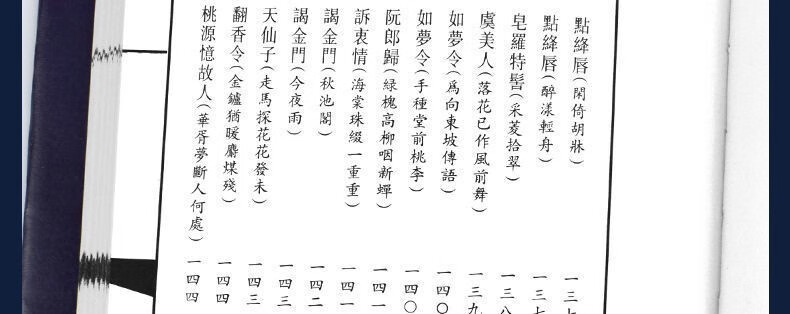 點絳唇（閑倚胡牀）　一三七
點絳唇（醉漾輕舟）　一三七
皂羅特髻（采菱拾翠）　一三八
虞美人（落花已作風前舞）　一三九
如夢令（爲向東坡傳語）　一四〇
如夢令（手種堂前桃李）　一四〇
阮郎歸（綠槐高柳咽新蟬）　一四一
訴衷情（海棠珠綴一重重）　一四一
謁金門（秋池閣）　一四二
謁金門（今夜雨）　一四三
天仙子（走馬探花花發未）　一四三
翻香令（金鑪猶暖麝煤殘）　一四四
桃源憶故人（華胥夢斷人何處）　一四四